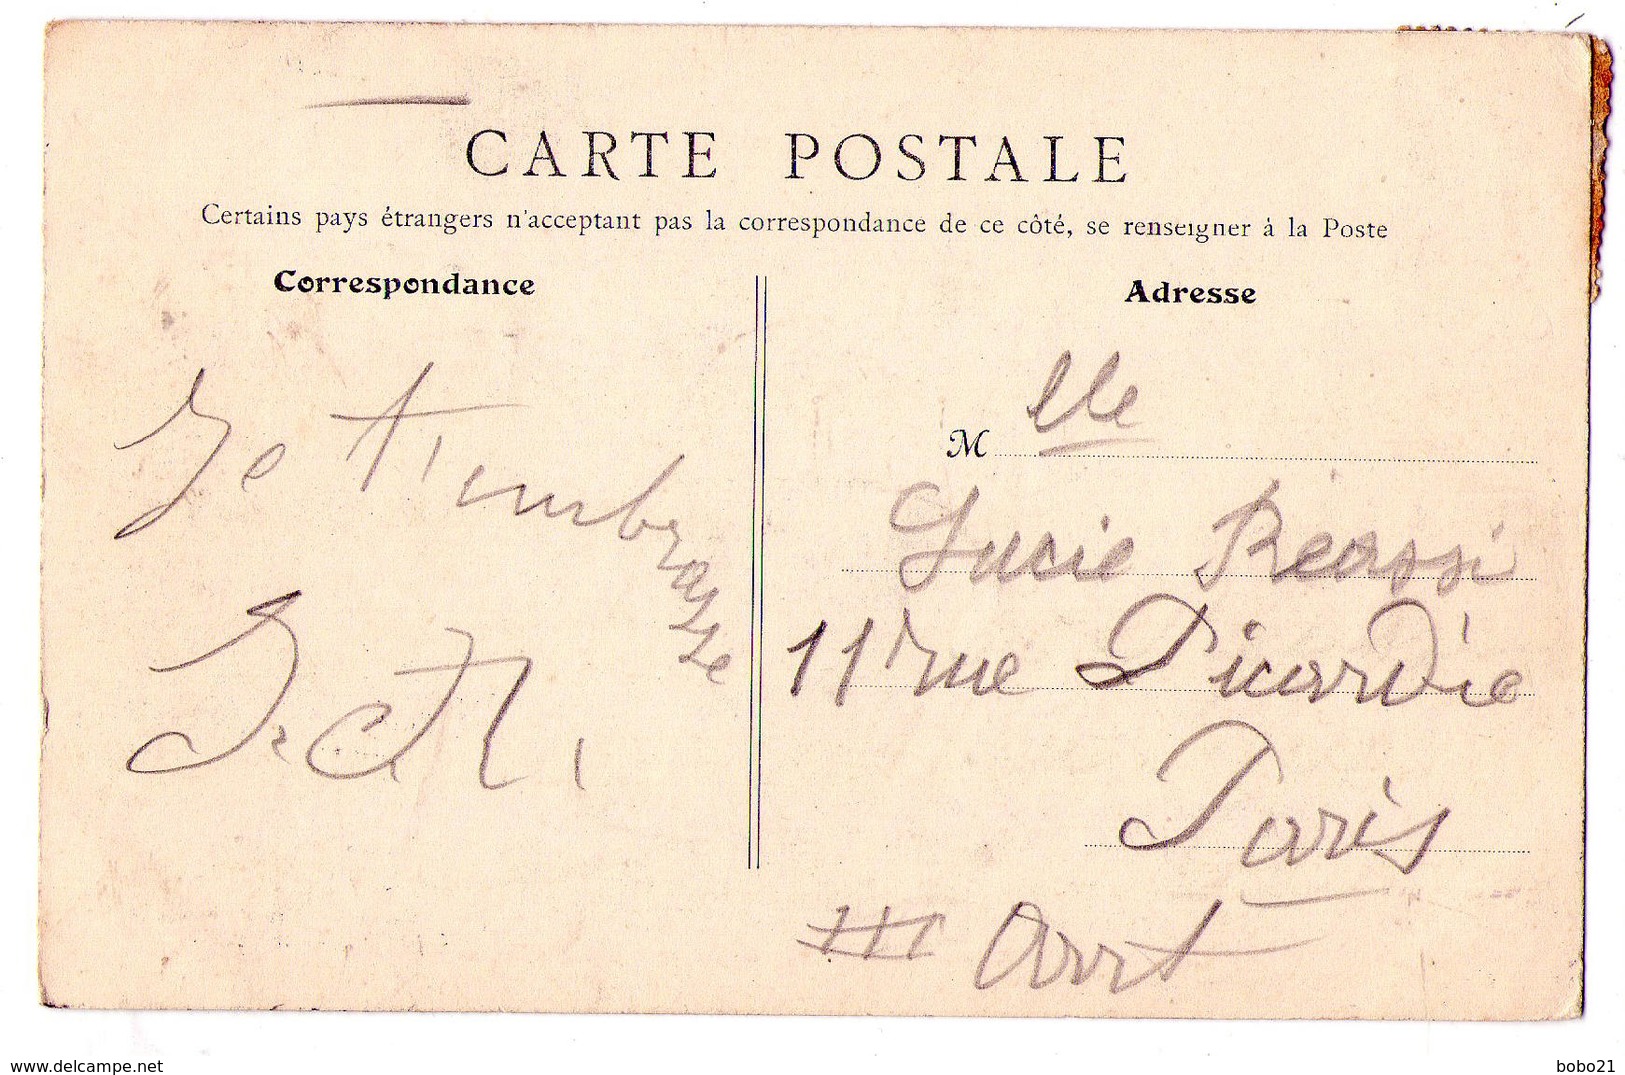 CARTE POSTALE
Certains pays étrangers n'acceptant pas la correspondance de ce côté, se renseigner à la Poste
Correspondance
Je t'embrasse
Adresse
Mlle
Lucie Reassi
11 rue Picardie
Paris
III Arrt
delcampe.net
bobo21